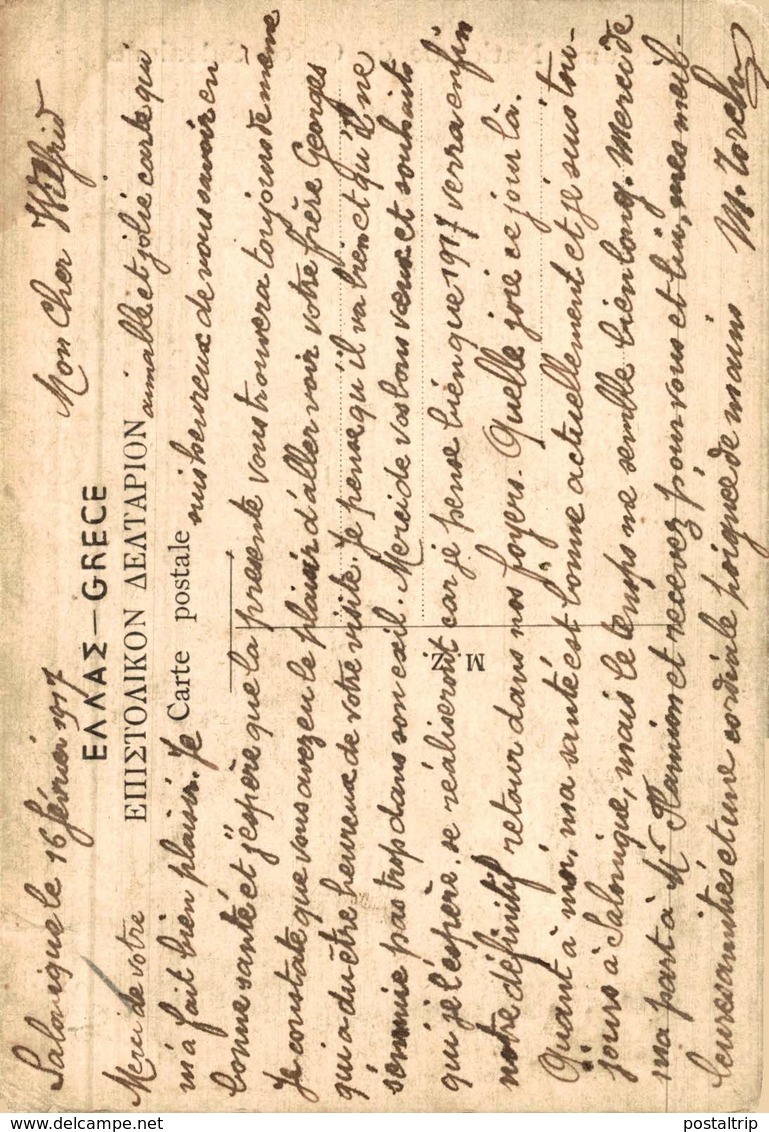 Salonique le 16 février 1917 Mon Cher Wilfrid
ΕΛΛΑΣ — GRECE
ΕΠΙΣΤΟΛΙΚΟΝ ΔΕΛΤΑΡΙΟΝ
Carte postale
Merci de votre aimable et jolie carte qui
m'a fait bien plaisir. Je suis heureux de vous savoir en
bonne santé et j'espère que la présente vous trouvera toujours de même
Je constate que vous avez eu le plaisir d'aller voir votre frère Georges
qui a du être heureux de votre visite. Je pense qu'il va bien et qu'il ne
s'ennuie pas trop dans son exil. Merci de vos bons vœux et souhaits
qui je l'espère se réaliseront car je pense bien que 1917 verra enfin
notre définitif retour dans nos foyers. Quelle joie ce jour là.
Quant à moi, ma santé est bonne actuellement et je suis tou-
jours à Salonique, mais le temps me semble bien long. Merci de
ma part à Mr et recevez pour vous et lui, mes meil-
leures amitiés et une cordiale poignée de mains
M. Z.
postaltrip